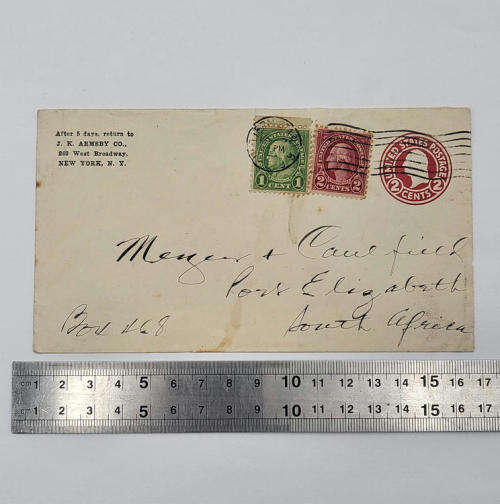 After 5 days, return to
J. K. ARMSBY CO.,
260 West Broadway,
NEW YORK, N. Y.
PM
1 CENT 1
2 CENTS 2
UNITED STATES POSTAGE
2 CENTS 2
&
Caulfield
Port Elizabeth
Box 468
South Africa
cm 1 2 3 4 5 6 7 8 9 10 11 12 13 14 15 16 17
cm 1 2 3 4 5 6 7 8 9 10 11 12 13 14 15 16 17